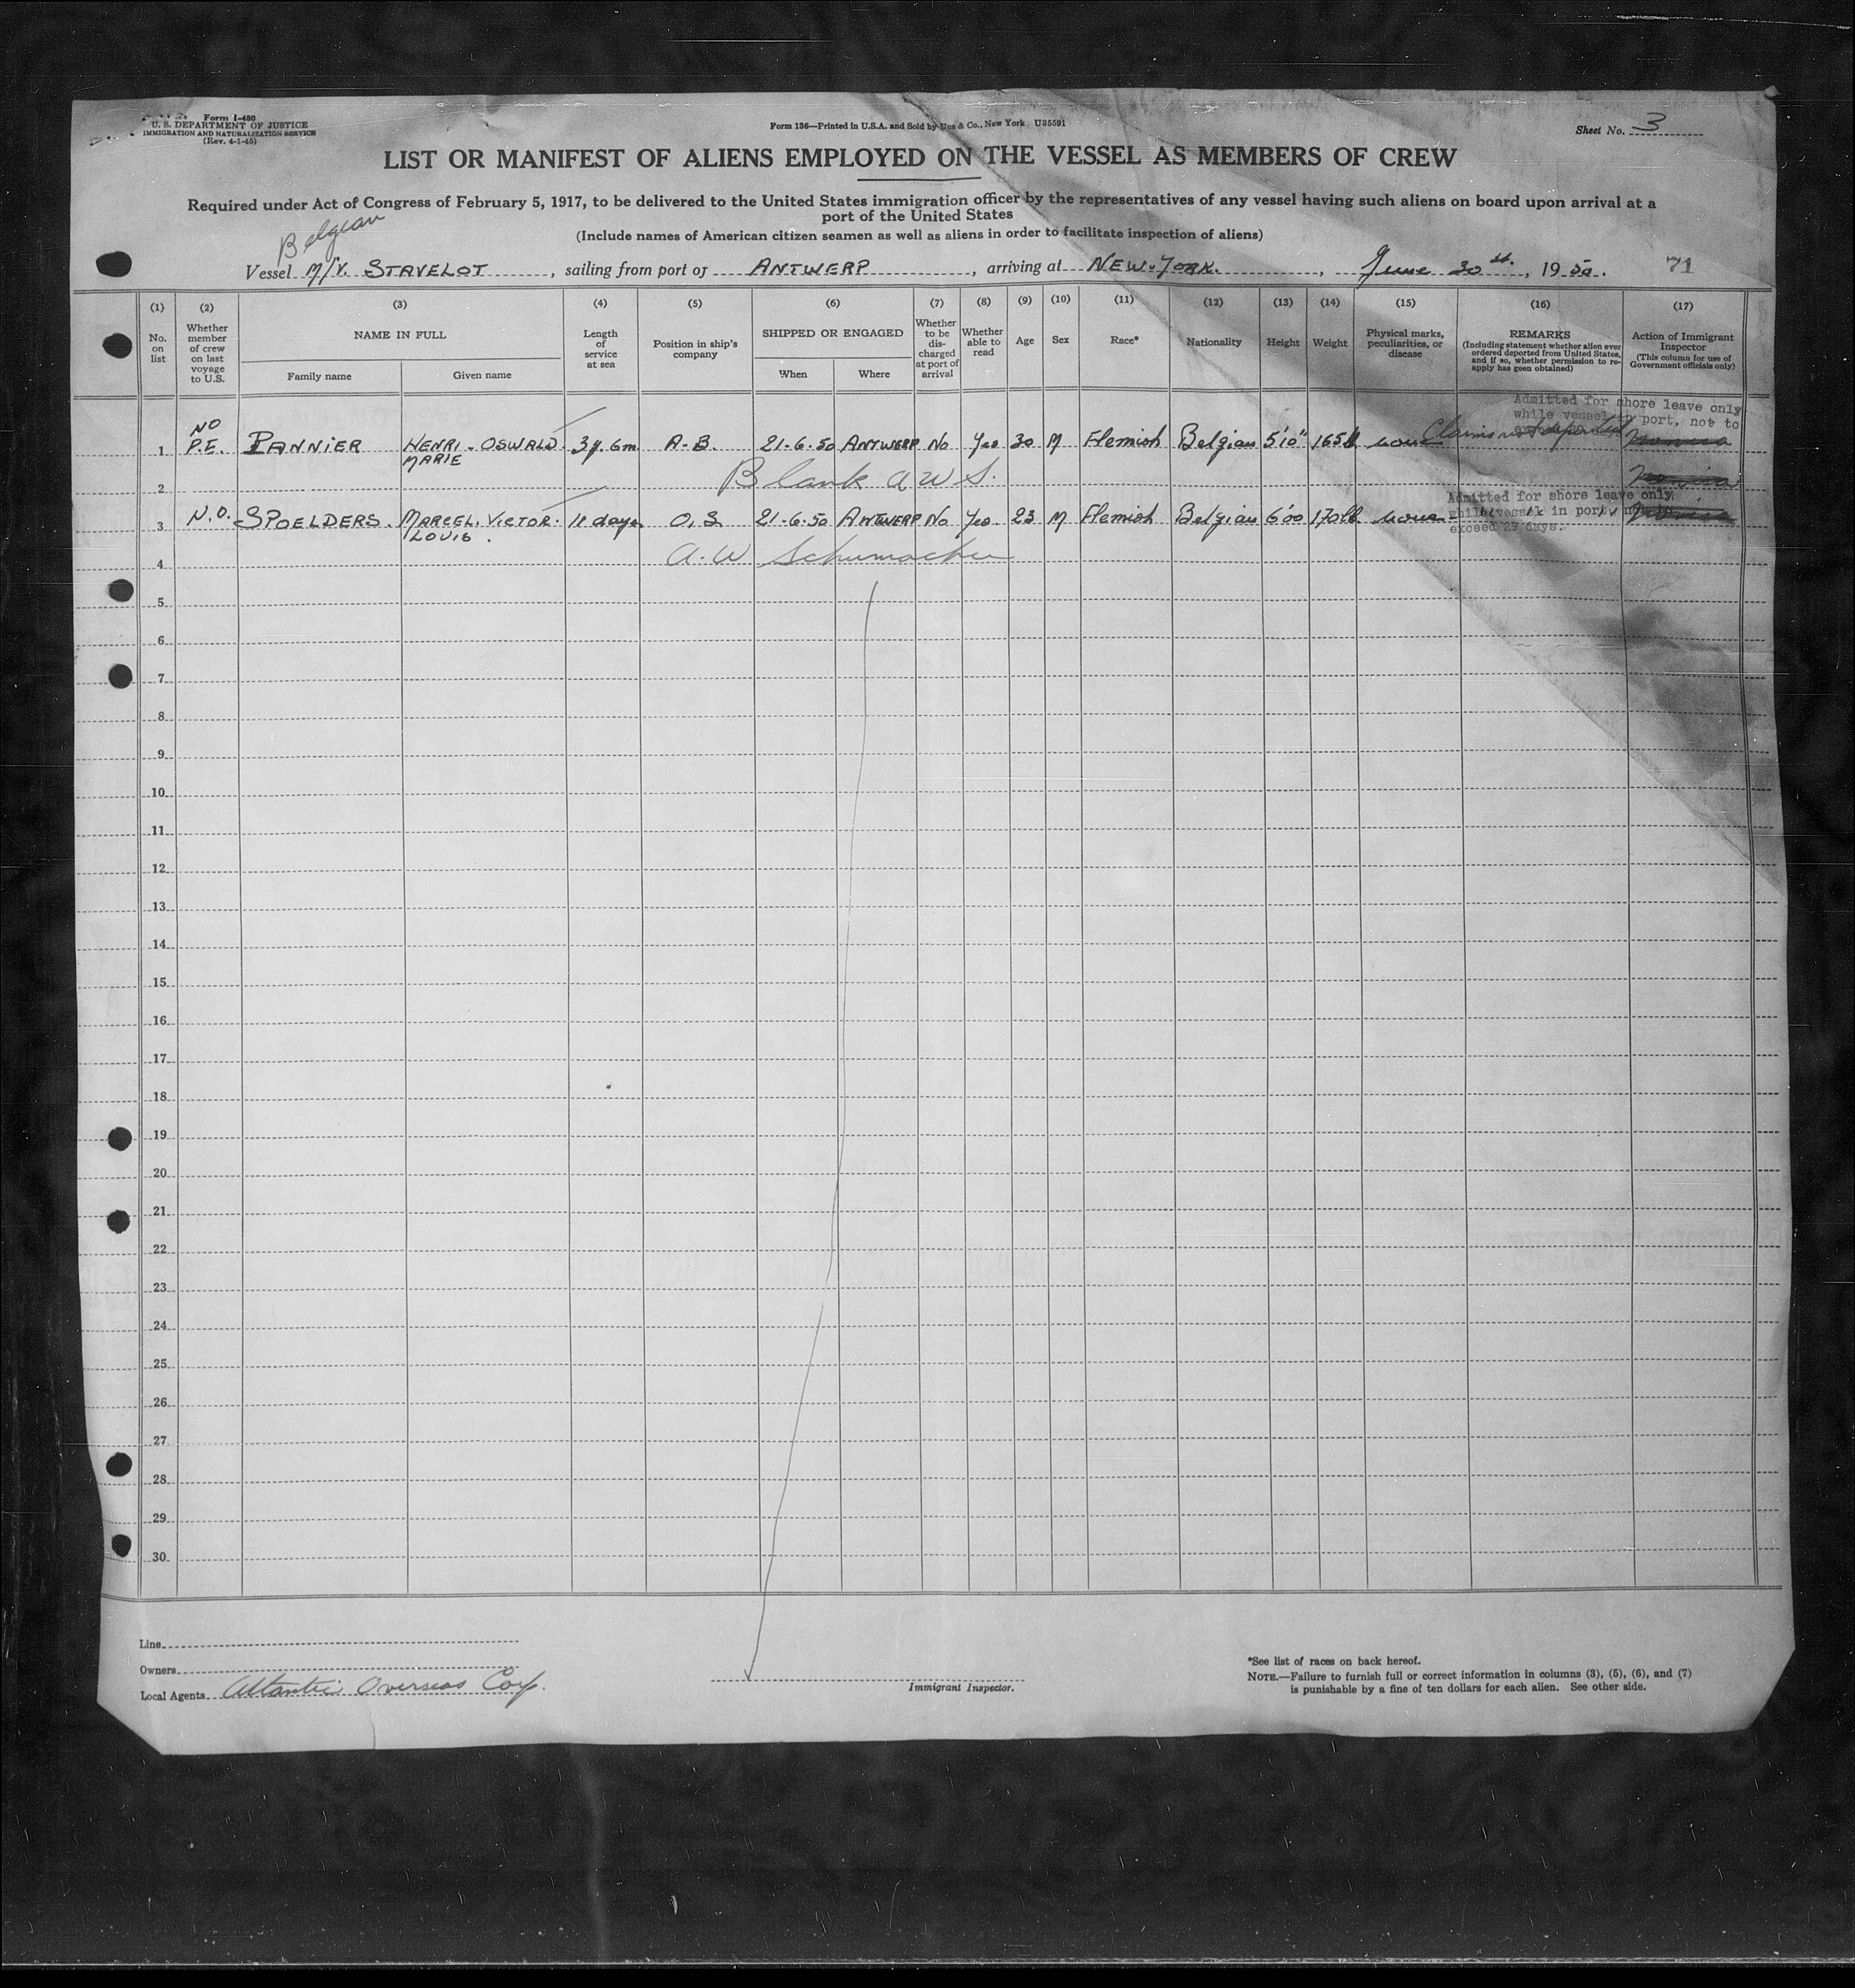 Form I-480
U. S. DEPARTMENT OF JUSTICE
IMMIGRATION AND NATURALIZATION SERVICE
(Rev. 4-1-45)
Form 136—Printed in U.S.A. and Sold by Unz & Co., New York U35591
Sheet No. 3
LIST OR MANIFEST OF ALIENS EMPLOYED ON THE VESSEL AS MEMBERS OF CREW
Required under Act of Congress of February 5, 1917, to be delivered to the United States immigration officer by the representatives of any vessel having such aliens on board upon arrival at a
port of the United States
(Include names of American citizen seamen as well as aliens in order to facilitate inspection of aliens)
Belgian
Vessel M/V. STAVELOT, sailing from port of ANTWERP, arriving at NEW-YORK., June 30th, 1950. 71
(1) (2) (3) (4) (5) (6) (7) (8) (9) (10) (11) (12) (13) (14) (15) (16) (17)
No. on list
Whether member of crew on last voyage to U.S.
NAME IN FULL
Family name
Given name
Length of service at sea
Position in ship's company
SHIPPED OR ENGAGED
When
Where
Whether to be discharged at port of arrival
Whether able to read
Age
Sex
Race*
Nationality
Height
Weight
Physical marks, peculiarities, or disease
REMARKS
(Including statement whether alien ever ordered deported from United States, and if so, whether permission to re-apply has geen obtained)
Action of Immigrant Inspector
(This column for use of Government officials only)
Admitted for shore leave only
while vessel in port, not to
1 NO P.E. PANNIER HENRI-OSWALD MARIE 3y. 6m A-B. 21-6-50 ANTWERP No Yes 30 M Flemish Belgian 5'10" 165 lb none Claims not deported
2 Blank AWS.
Admitted for shore leave only
while vessel in port, not to
exceed 29 days.
3 N.O. SPOELDERS. MARCEL. VICTOR. LOUIS. 11 days O.S. 21-6-50 ANTWERP No Yes 23 M Flemish Belgian 6'00 170 lb none
4 A.W Schumacher
5
6
7
8
9
10
11
12
13
14
15
16
17
18
19
20
21
22
23
24
25
26
27
28
29
30
Line
Owners
Local Agents Atlantic Overseas Corp.
Immigrant Inspector.
*See list of races on back hereof.
NOTE.—Failure to furnish full or correct information in columns (3), (5), (6), and (7)
is punishable by a fine of ten dollars for each alien. See other side.